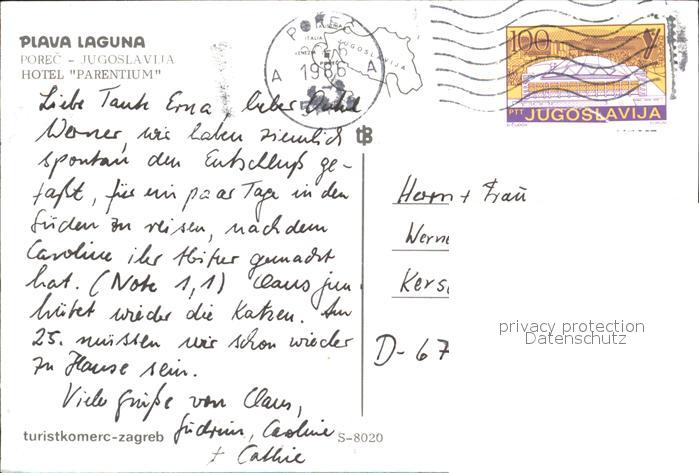 PLAVA LAGUNA
POREČ - JUGOSLAVIJA
HOTEL "PARENTIUM"
Liebe Tante Erna lieber Onkel
Werner wir haben ziemlich
spontan den Entschluß ge-
faßt, für ein paar Tage in den
Süden zu reisen, nachdem
Caroline ihr Abitur gemacht
hat. (Note 1,1) Claus jun
hütet wieder die Katzen. Am
25. müssen wir schon wieder
zu Hause sein.
Viele Grüße von Claus,
Gudrun, Caroline
+ Cathie
turistkomerc-zagreb
S-8020
POREČ
1986
A A
JUGOSLAVIJA
ITALIA
100
PTT JUGOSLAVIJA
Herrn + Frau
Werne
Kers
D-67
privacy protection
Datenschutz